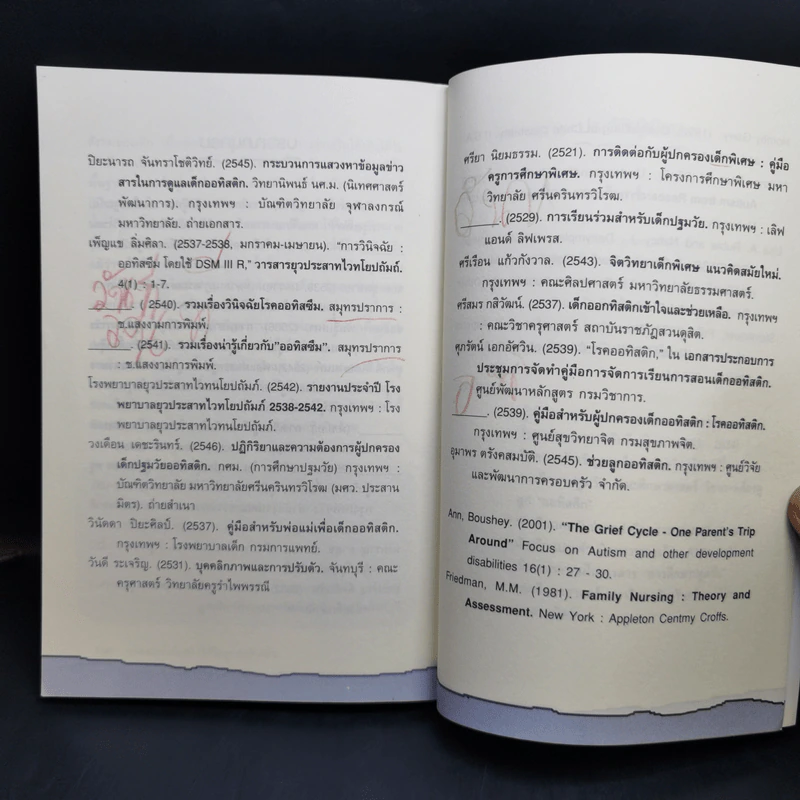 ปิยะนารถ จันทราโชติวิทย์. (2545). กระบวนการแสวงหาข้อมูลข่าว
สารในการดูแลเด็กออทิสติก. วิทยานิพนธ์ นศ.ม. (นิเทศศาสตร์
พัฒนาการ). กรุงเทพฯ : บัณฑิตวิทยาลัย จุฬาลงกรณ์
มหาวิทยาลัย. ถ่ายเอกสาร.
เพ็ญแข ลิ่มศิลา. (2537-2538, มกราคม-เมษายน). "การวินิจฉัย :
ออทิสซึม โดยใช้ DSM III R," วารสารยุวประสาทไวทโยปถัมถ์.
4(1) : 1-7.
_____. ( 2540). รวมเรื่องวินิจฉัยโรคออทิสซึม. สมุทรปราการ :
ช.แสงงามการพิมพ์.
_____. (2541). รวมเรื่องน่ารู้เกี่ยวกับ"ออทิสซึม". สมุทรปราการ
: ช.แสงงามการพิมพ์.
โรงพยาบาลยุวประสาทไวทนโยปถัมภ์. (2542). รายงานประจำปี โรง
พยาบาลยุวประสาทไวทโยปถัมภ์ 2538-2542. กรุงเทพฯ : โรง
พยาบาลยุวประสาทไวทนโยปถัมภ์.
วงเดือน เดชะรินทร์. (2546). ปฏิกิริยาและความต้องการผู้ปกครอง
เด็กปฐมวัยออทิสติก. กศม. (การศึกษาปฐมวัย) กรุงเทพฯ :
บัณฑิตวิทยาลัย มหาวิทยาลัยศรีนครินทรวิโรฒ (มศว. ประสาน
มิตร). ถ่ายสำเนา
วินัดดา ปิยะศิลป์. (2537). คู่มือสำหรับพ่อแม่เพื่อเด็กออทิสติก.
กรุงเทพฯ : โรงพยาบาลเด็ก กรมการแพทย์.
วันดี ระเจริญ. (2531). บุคคลิกภาพและการปรับตัว. จันทบุรี : คณะ
ครุศาสตร์ วิทยาลัยครูรำไพพรรณี
ศรียา นิยมธรรม. (2521). การติดต่อกับผู้ปกครองเด็กพิเศษ : คู่มือ
ครูการศึกษาพิเศษ. กรุงเทพฯ : โครงการศึกษาพิเศษ มหา
วิทยาลัย ศรีนครินทรวิโรฒ.
_____. (2529). การเรียนร่วมสำหรับเด็กปฐมวัย. กรุงเทพฯ : เลิฟ
แอนด์ ลิฟเพรส.
ศรีเรือน แก้วกังวาล. (2543). จิตวิทยาเด็กพิเศษ แนวคิดสมัยใหม่.
กรุงเทพฯ : คณะศิลปศาสตร์ มหาวิทยาลัยธรรมศาสตร์.
ศรีสมร กสิวัฒน์. (2537). เด็กออทิสติกเข้าใจและช่วยเหลือ. กรุงเทพฯ
: คณะวิชาครุศาสตร์ สถาบันราชภัฏสวนดุสิต.
ศุภรัตน์ เอกอัศวิน. (2539). "โรคออทิสติก," ใน เอกสารประกอบการ
ประชุมการจัดทำคู่มือการจัดการเรียนการสอนเด็กออทิสติก.
ศูนย์พัฒนาหลักสูตร กรมวิชาการ.
_____. (2539). คู่มือสำหรับผู้ปกครองเด็กออทิสติก : โรคออทิสติก.
กรุงเทพฯ : ศูนย์สุขวิทยาจิต กรมสุขภาพจิต.
อุมาพร ตรังคสมบัติ. (2545). ช่วยลูกออทิสติก. กรุงเทพฯ : ศูนย์วิจัย
และพัฒนาการครอบครัว จำกัด.
Ann, Boushey. (2001). "The Grief Cycle - One Parent's Trip
Around" Focus on Autism and other development
disabilities 16(1) : 27 - 30.
Friedman, M.M. (1981). Family Nursing : Theory and
Assessment. New York : Appleton Centmy Croffs.